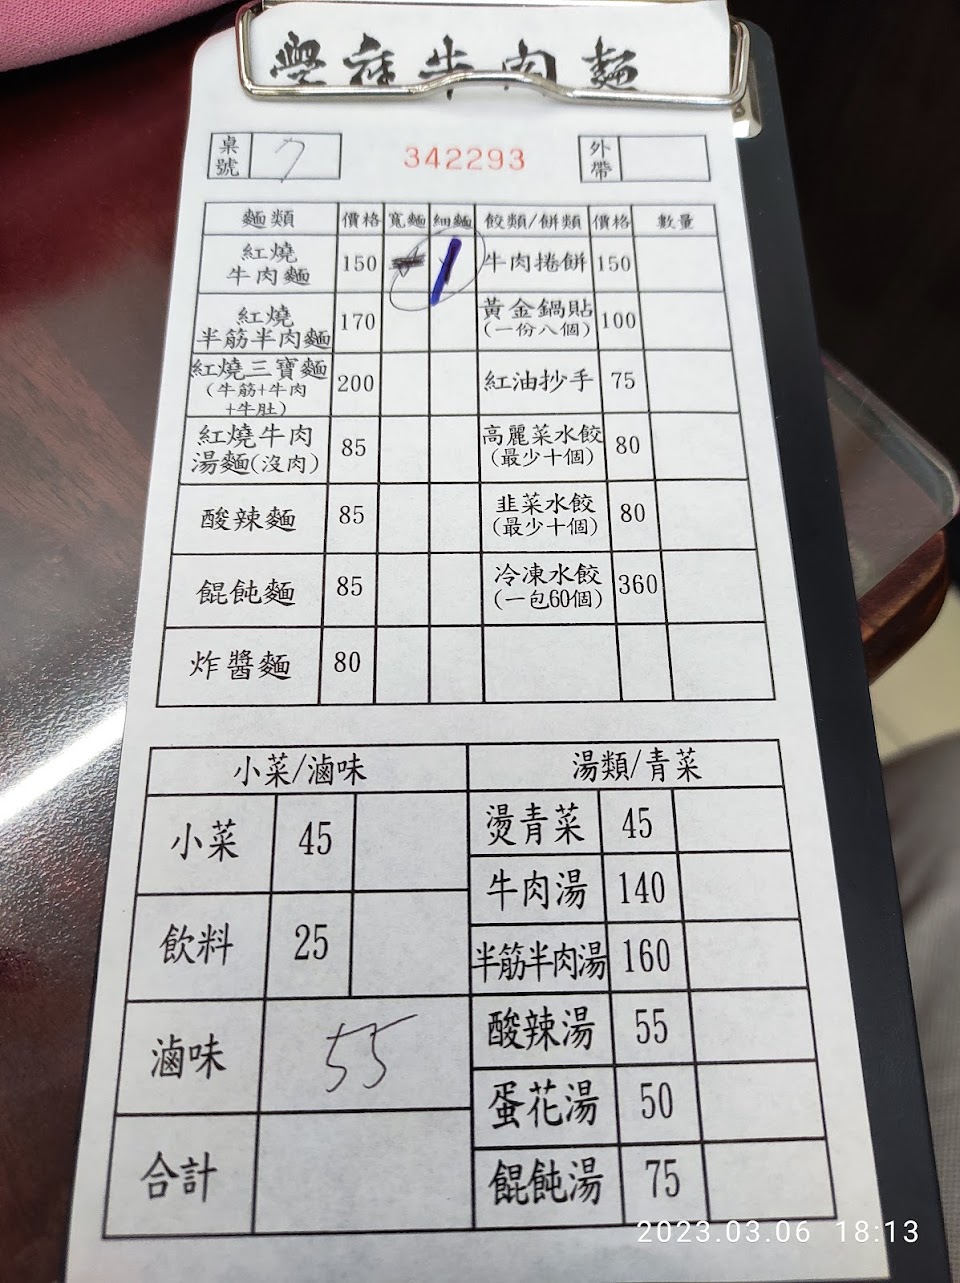 牛肉麵
桌號 7 342293 外帶
麵類 價格 寬麵 細麵 餃類/餅類 價格 數量
紅燒牛肉麵 150 1 牛肉捲餅 150
紅燒半筋半肉麵 170 黃金鍋貼(一份八個) 100
紅燒三寶麵(牛筋+牛肉+牛肚) 200 紅油抄手 75
紅燒牛肉湯麵(沒肉) 85 高麗菜水餃(最少十個) 80
酸辣麵 85 韭菜水餃(最少十個) 80
餛飩麵 85 冷凍水餃(一包60個) 360
炸醬麵 80
小菜/滷味 湯類/青菜
小菜 45 燙青菜 45
牛肉湯 140
飲料 25 半筋半肉湯 160
滷味 55 酸辣湯 55
蛋花湯 50
合計 餛飩湯 75
2023.03.06 18:13